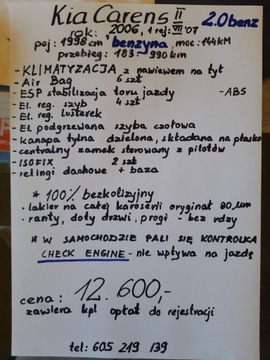 Kia Carens II 2.0 benz
rok: 2006, 1 rej: VII '07
poj: 1998 cm³, benzyna, moc: 144KM
przebieg: 183-990 km
- KLIMATYZACJA z nawiewem na tył
- Air Bag 6 szt
- ESP stabilizacja toru jazdy - ABS
- El. reg. szyb 4 szt
- El. reg. lusterek
- El podgrzewana szyba czołowa
- kanapa tylna dzielona, składana na płasko
- centralny zamek sterowany z pilotów
- ISOFIX 2 szt
- relingi dachowe + baza
* 100% bezkolizyjny
- lakier na całej karoserii oryginał 80 µm
- ranty, doły drzwi, progi - bez rdzy
* W SAMOCHODZIE PALI SIĘ KONTROLKA
CHECK ENGINE - nie wpływa na jazdę
cena: 12.600,-
zawiera kpl opłat do rejestracji
tel: 605 219 139